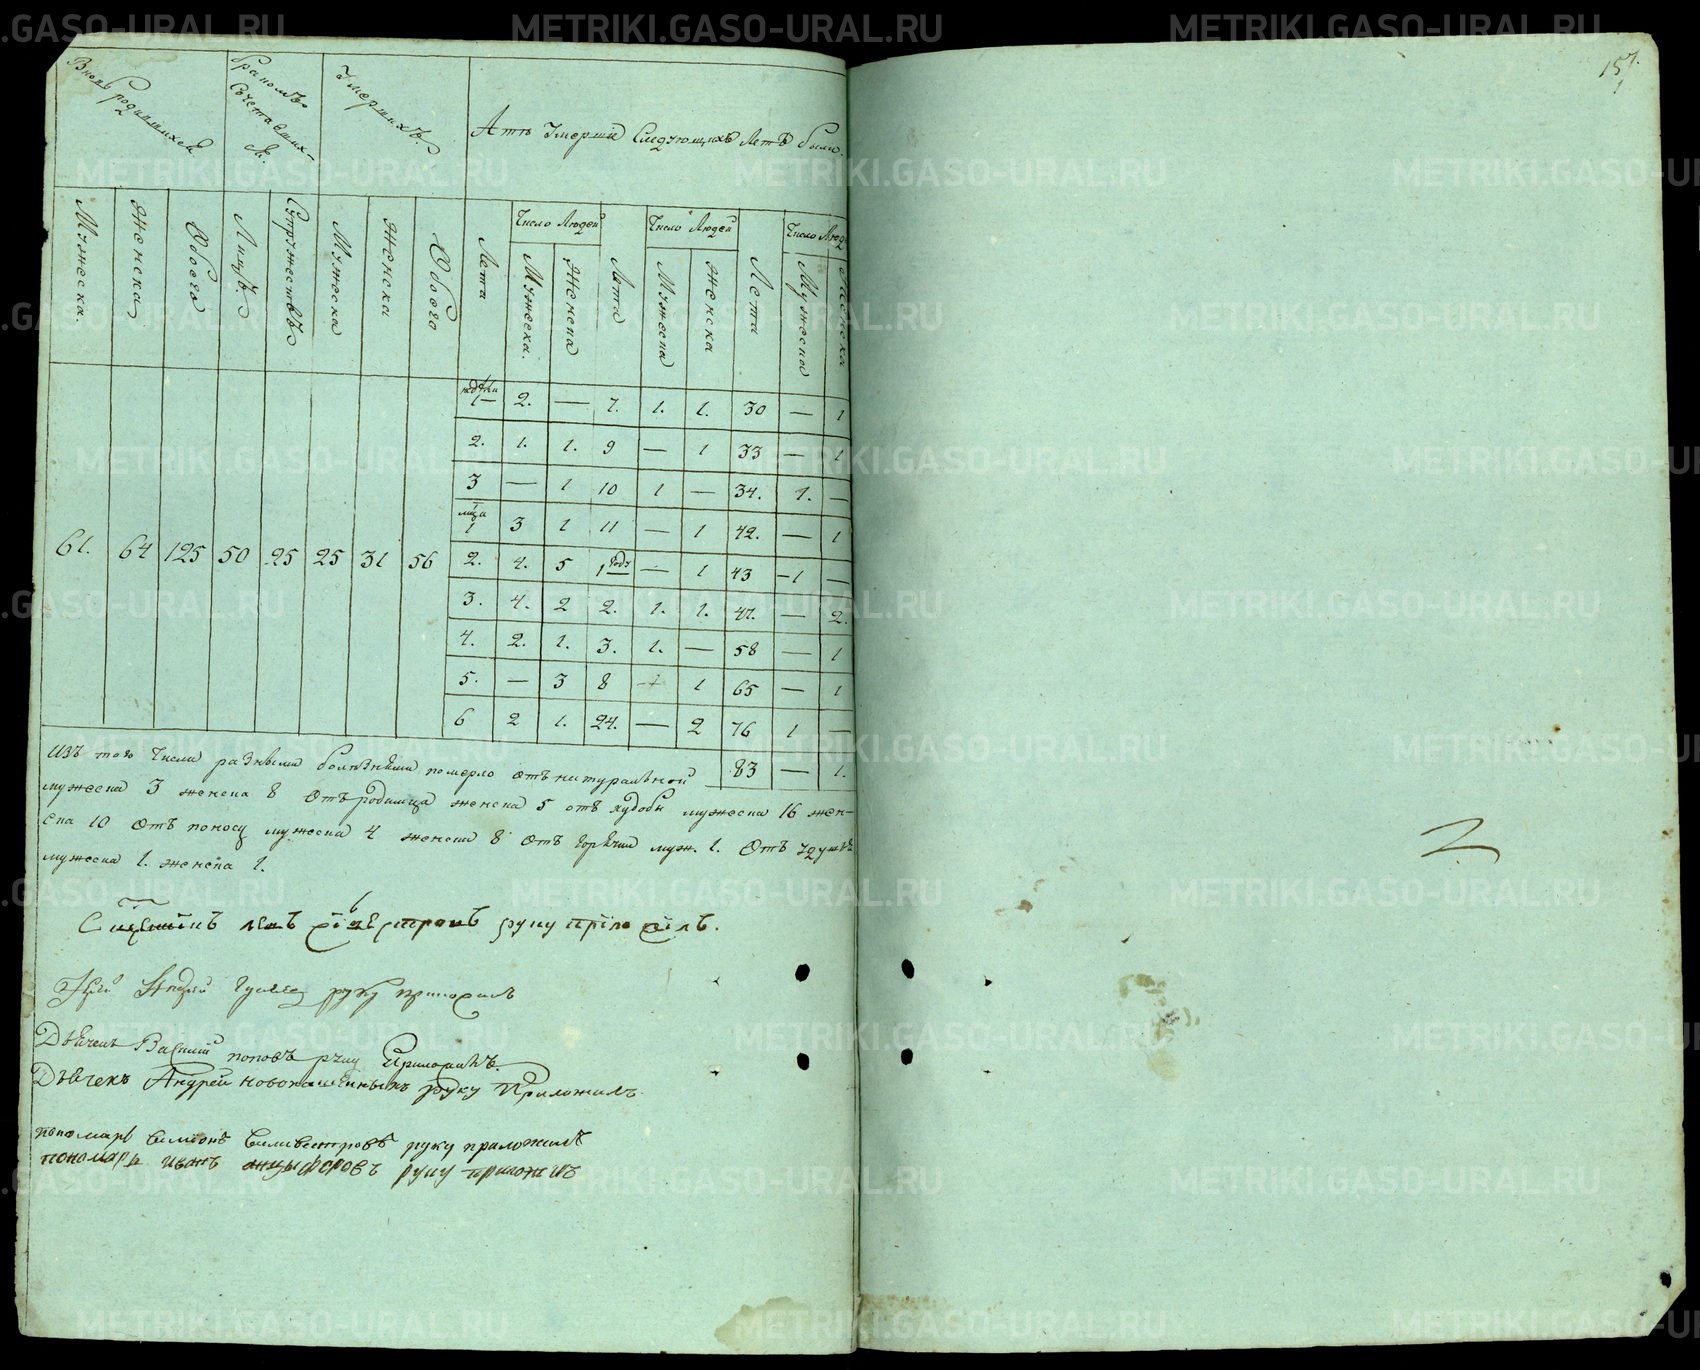 157.
Вновь родившихся
бракомъ Сочетавших-ся.
Умершихъ
Лѣтъ Умершiе Слѣдующихъ Летъ были.
Мужеска. Женска Обоего Лицъ. Супружествъ Мужеска Женска Обоего Лета Число Людей Лета Число Людей Лета Число Люд
Мужеска. Женска Мужеска Женска Мужеска Женска
61. 64 125 50 25 25 31 56
1 2. — 7. 1. 1. 30 — 1
2. 1. 1. 9 — 1 33 — 1
3 — 1 10 1 — 34. 1. —
1 3 1 11 — 1 42. — 1
2. 4. 5 1 годъ — 1 43 1 —
3. 4. 2 2. 1. 1. 47. — 2.
4. 2. 1. 3. 1. — 58 — 1
5. — 3 8 1 65 — 1
6 2 1. 24. — 2 76 1 —
83 — 1.
изъ того Числа разными болѣзньми померло отъ натуральной
мужеска 3 женска 8 отъ родимца женска 5 отъ худобы мужеска 16 жен-
ска 10 отъ поносу мужеска 4 женска 8 отъ горячки муж. 1. отъ
мужеска 1. женска 1.
руку приложилъ.
Iерей Андрей руку приложилъ
Дьячекъ Василiй поповъ руку Приложилъ.
Дьячекъ Андрей новопашенныхъ руку Приложилъ.
пономарь симiонъ силивестровъ руку приложилъ
пономарь иванъ анцыфоровъ руку приложилъ
METRIKI.GASO-URAL.RU